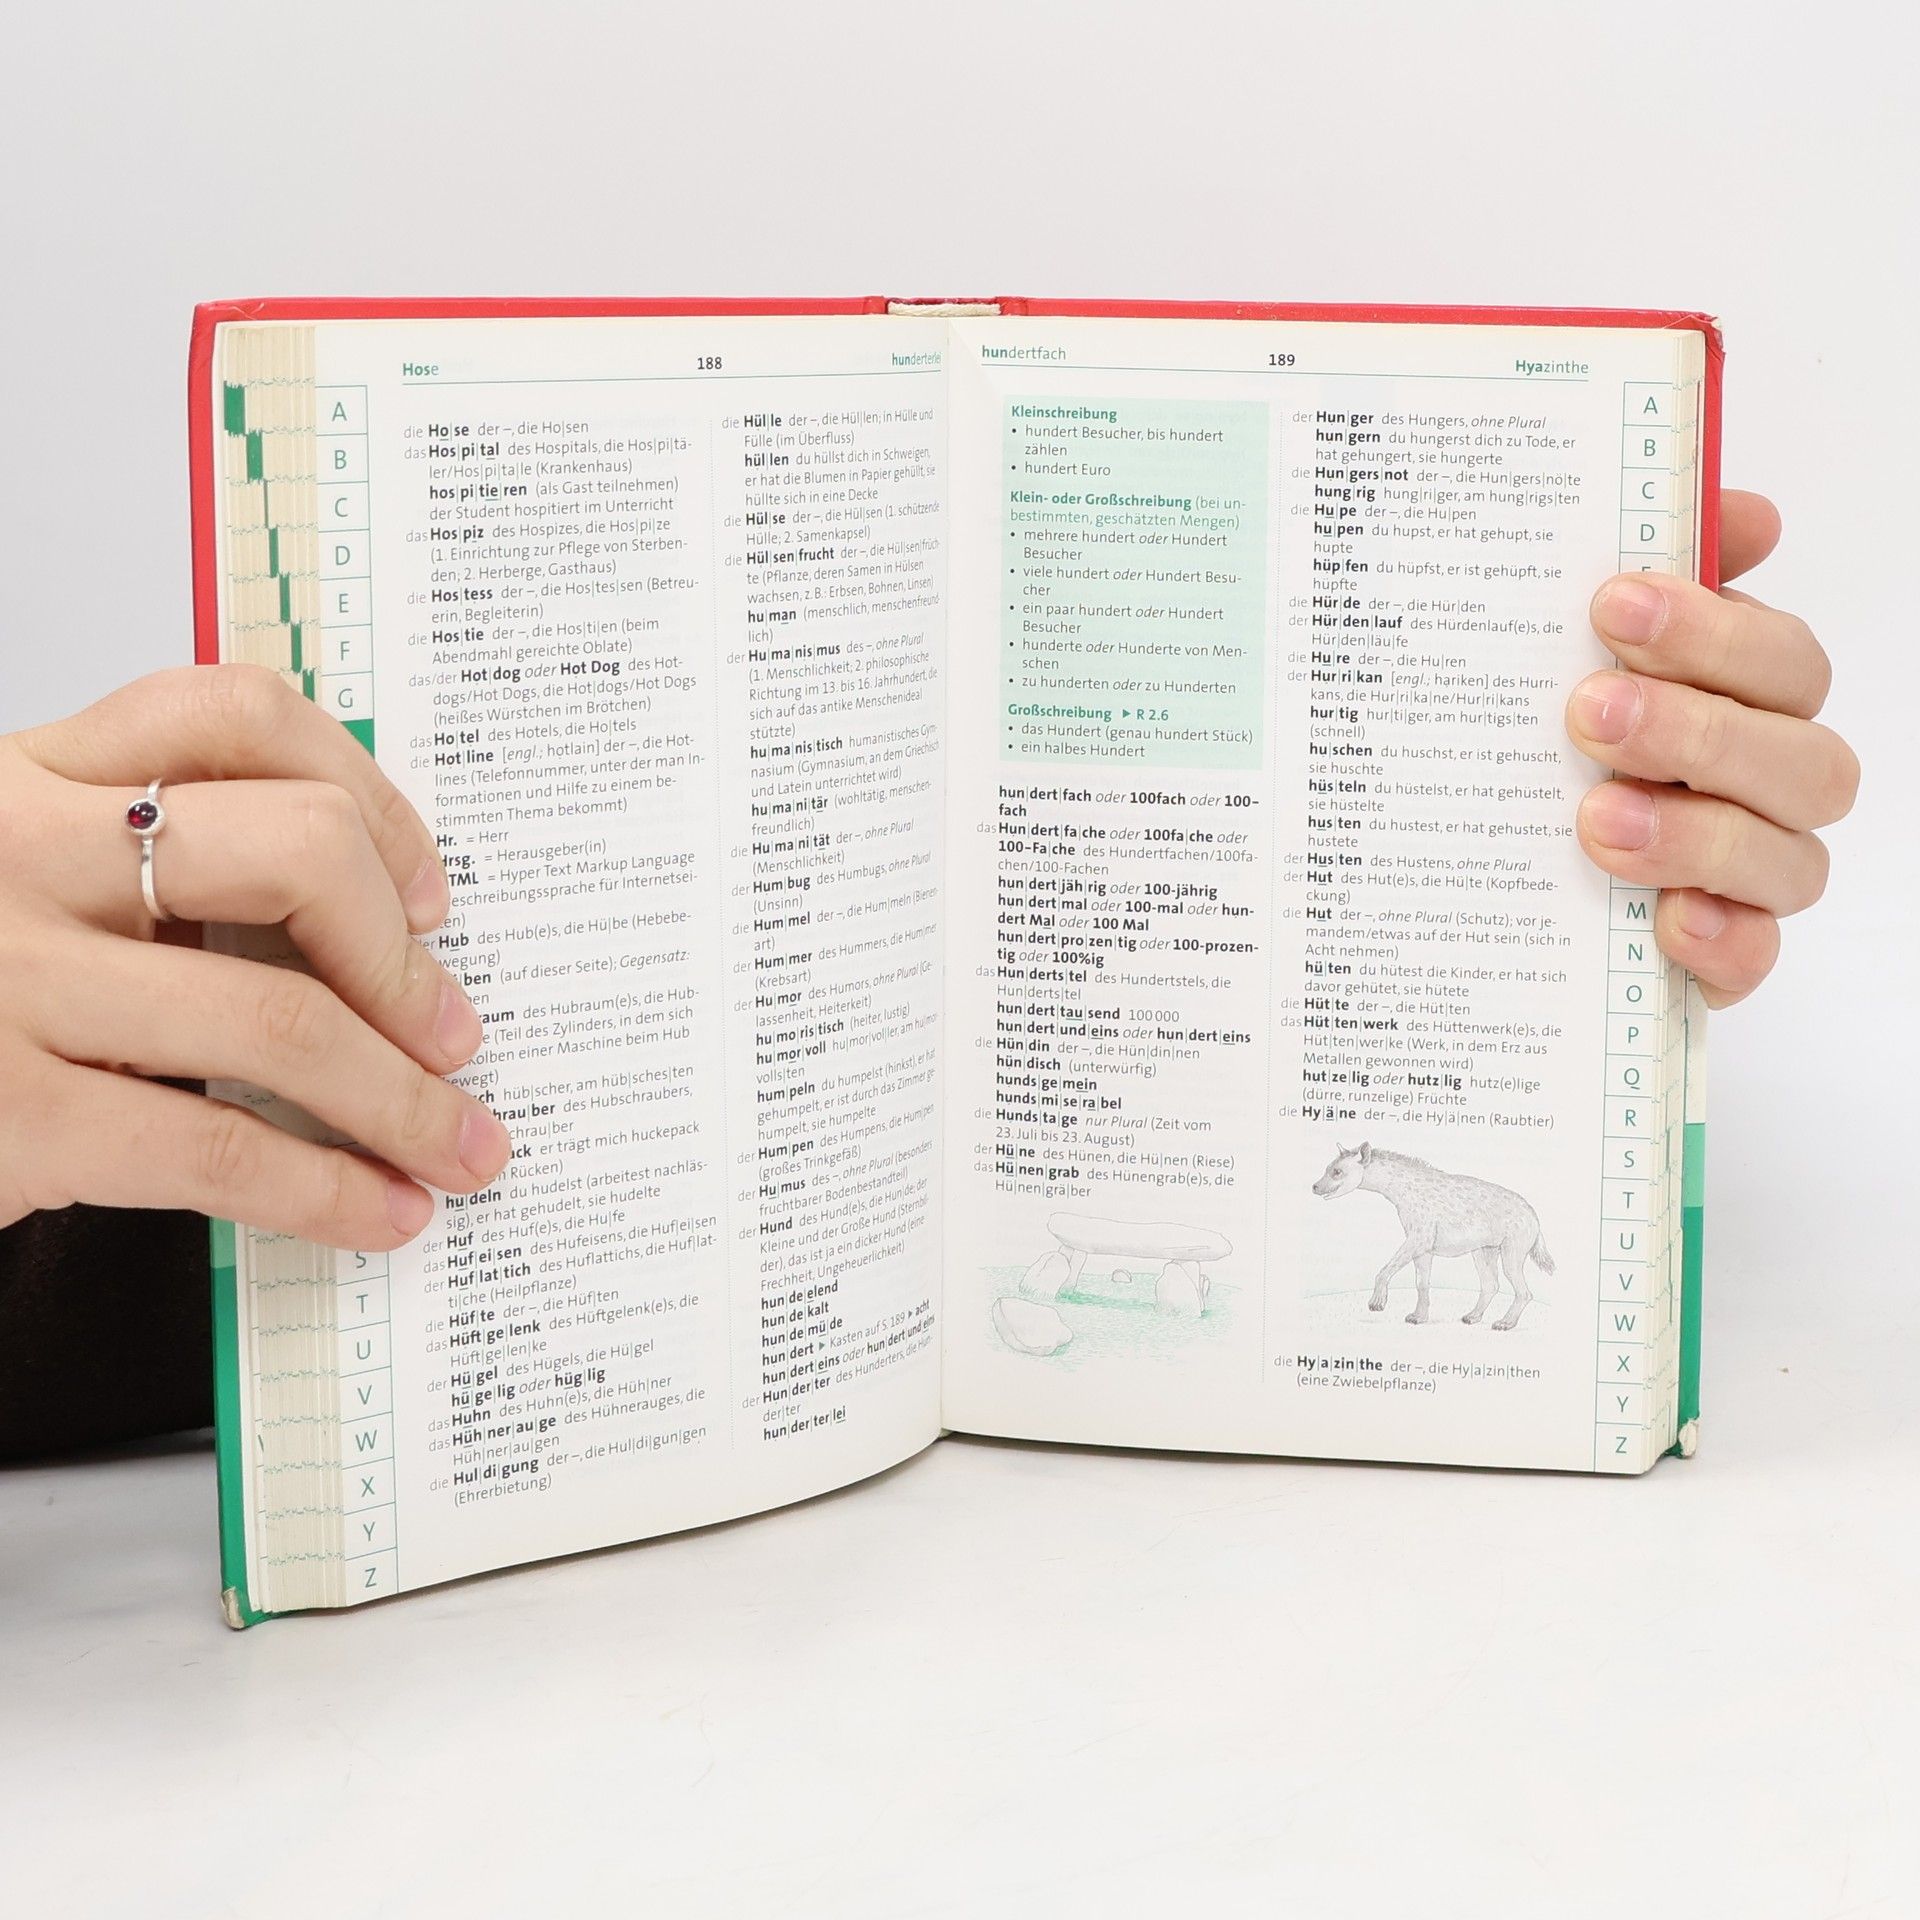 Hose
188
hunderterlei
A
B
C
D
E
F
G
S
T
U
V
W
X
Y
Z
die Ho|se der –, die Ho|sen
das Hos|pi|tal des Hospitals, die Hos|pi|tä-
ler/Hos|pi|ta|le (Krankenhaus)
hos|pi|tie|ren (als Gast teilnehmen)
der Student hospitiert im Unterricht
das Hos|piz des Hospizes, die Hos|pi|ze
(1. Einrichtung zur Pflege von Sterben-
den; 2. Herberge, Gasthaus)
die Hos|tess der –, die Hos|tes|sen (Betreu-
erin, Begleiterin)
die Hos|tie der –, die Hos|ti|en (beim
Abendmahl gereichte Oblate)
das/der Hot|dog oder Hot Dog des Hot-
dogs/Hot Dogs, die Hot|dogs/Hot Dogs
(heißes Würstchen im Brötchen)
das Ho|tel des Hotels, die Ho|tels
die Hot|line [engl.; hotlain] der –, die Hot-
lines (Telefonnummer, unter der man In-
formationen und Hilfe zu einem be-
stimmten Thema bekommt)
Hr. = Herr
Hrsg. = Herausgeber(in)
TML = Hyper Text Markup Language
eschreibungssprache für Internetsei-
en)
er Hub des Hub(e)s, die Hü|be (Hebebe-
wegung)
ben (auf dieser Seite); Gegensatz:
en
raum des Hubraum(e)s, die Hub-
e (Teil des Zylinders, in dem sich
Kolben einer Maschine beim Hub
ewegt)
ch hüb|scher, am hüb|sches|ten
hrau|ber des Hubschraubers,
chrau|ber
ack er trägt mich huckepack
n Rücken)
hu|deln du hudelst (arbeitest nachläs-
sig), er hat gehudelt, sie hudelte
der Huf des Huf(e)s, die Hu|fe
das Huf|ei|sen des Hufeisens, die Huf|ei|sen
der Huf|lat|tich des Huflattichs, die Huf|lat-
ti|che (Heilpflanze)
die Hüf|te der –, die Hüf|ten
das Hüft|ge|lenk des Hüftgelenk(e)s, die
Hüft|ge|len|ke
der Hü|gel des Hügels, die Hü|gel
hü|ge|lig oder hüg|lig
das Huhn des Huhn(e)s, die Hüh|ner
das Hüh|ner|au|ge des Hühnerauges, die
Hüh|ner|au|gen
die Hul|di|gung der –, die Hul|di|gun|gen
(Ehrerbietung)
die Hül|le der –, die Hül|len; in Hülle und
Fülle (im Überfluss)
hül|len du hüllst dich in Schweigen,
er hat die Blumen in Papier gehüllt, sie
hüllte sich in eine Decke
die Hül|se der –, die Hül|sen (1. schützende
Hülle; 2. Samenkapsel)
die Hül|sen|frucht der –, die Hül|sen|früch-
te (Pflanze, deren Samen in Hülsen
wachsen, z. B.: Erbsen, Bohnen, Linsen)
hu|man (menschlich, menschenfreund-
lich)
der Hu|ma|nis|mus des –, ohne Plural
(1. Menschlichkeit; 2. philosophische
Richtung im 13. bis 16. Jahrhundert, die
sich auf das antike Menschenideal
stützte)
hu|ma|nis|tisch humanistisches Gym-
nasium (Gymnasium, an dem Griechisch
und Latein unterrichtet wird)
hu|ma|ni|tär (wohltätig, menschen-
freundlich)
die Hu|ma|ni|tät der –, ohne Plural
(Menschlichkeit)
der Hum|bug des Humbugs, ohne Plural
(Unsinn)
die Hum|mel der –, die Hum|meln (Bienen-
art)
der Hum|mer des Hummers, die Hum|mer
(Krebsart)
der Hu|mor des Humors, ohne Plural (Ge-
lassenheit, Heiterkeit)
hu|mo|ris|tisch (heiter, lustig)
hu|mor|voll hu|mor|vol|ler, am hu|mor-
volls|ten
hum|peln du humpelst (hinkst), er hat
gehumpelt, er ist durch das Zimmer ge-
humpelt, sie humpelte
der Hum|pen des Humpens, die Hum|pen
(großes Trinkgefäß)
der Hu|mus des –, ohne Plural (besonders
fruchtbarer Bodenbestandteil)
der Hund des Hund(e)s, die Hun|de; der
Kleine und der Große Hund (Sternbil-
der), das ist ja ein dicker Hund (eine
Frechheit, Ungeheuerlichkeit)
hun|de|elend
hun|de|kalt
hun|de|mü|de
hun|dert ▶ Kasten auf S. 189 ▶ acht
hun|dert|eins oder hun|dert|und|eins
der Hun|der|ter des Hunderters, die Hun-
der|ter
hun|der|ter|lei
hundertfach
189
Hyazinthe
Kleinschreibung
• hundert Besucher, bis hundert
zählen
• hundert Euro
Klein- oder Großschreibung (bei un-
bestimmten, geschätzten Mengen)
• mehrere hundert oder Hundert
Besucher
• viele hundert oder Hundert Besu-
cher
• ein paar hundert oder Hundert
Besucher
• hunderte oder Hunderte von Men-
schen
• zu hunderten oder zu Hunderten
Großschreibung ▶ R 2.6
• das Hundert (genau hundert Stück)
• ein halbes Hundert
hun|dert|fach oder 100fach oder 100-
fach
das Hun|dert|fa|che oder 100fa|che oder
100-Fa|che des Hundertfachen/100fa-
chen/100-Fachen
hun|dert|jäh|rig oder 100-jährig
hun|dert|mal oder 100-mal oder hun-
dert Mal oder 100 Mal
hun|dert|pro|zen|tig oder 100-prozen-
tig oder 100%ig
das Hun|derts|tel des Hundertstels, die
Hun|derts|tel
hun|dert|tau|send 100 000
hun|dert|und|eins oder hun|dert|eins
die Hün|din der –, die Hün|din|nen
hün|disch (unterwürfig)
hunds|ge|mein
hunds|mi|se|ra|bel
die Hunds|ta|ge nur Plural (Zeit vom
23. Juli bis 23. August)
der Hü|ne des Hünen, die Hü|nen (Riese)
das Hü|nen|grab des Hünengrab(e)s, die
Hü|nen|grä|ber
der Hun|ger des Hungers, ohne Plural
hun|gern du hungerst dich zu Tode, er
hat gehungert, sie hungerte
die Hun|gers|not der –, die Hun|gers|nö|te
hung|rig hung|ri|ger, am hung|rigs|ten
die Hu|pe der –, die Hu|pen
hu|pen du hupst, er hat gehupt, sie
hupte
hüp|fen du hüpfst, er ist gehüpft, sie
hüpfte
die Hür|de der –, die Hür|den
der Hür|den|lauf des Hürdenlauf(e)s, die
Hür|den|läu|fe
die Hu|re der –, die Hu|ren
der Hur|ri|kan [engl.; hariken] des Hurri-
kans, die Hur|ri|ka|ne/Hur|ri|kans
hur|tig hur|ti|ger, am hur|tigs|ten
(schnell)
hu|schen du huschst, er ist gehuscht,
sie huschte
hüs|teln du hüstelst, er hat gehüstelt,
sie hüstelte
hus|ten du hustest, er hat gehustet, sie
hustete
der Hus|ten des Hustens, ohne Plural
der Hut des Hut(e)s, die Hü|te (Kopfbede-
ckung)
die Hut der –, ohne Plural (Schutz); vor je-
mandem/etwas auf der Hut sein (sich in
Acht nehmen)
hü|ten du hütest die Kinder, er hat sich
davor gehütet, sie hütete
die Hüt|te der –, die Hüt|ten
das Hüt|ten|werk des Hüttenwerk(e)s, die
Hüt|ten|wer|ke (Werk, in dem Erz aus
Metallen gewonnen wird)
hut|ze|lig oder hutz|lig hutz(e)lige
(dürre, runzelige) Früchte
die Hy|ä|ne der –, die Hy|ä|nen (Raubtier)
die Hy|a|zin|the der –, die Hy|a|zin|then
(eine Zwiebelpflanze)
A
B
C
D
M
N
O
P
Q
R
S
T
U
V
W
X
Y
Z